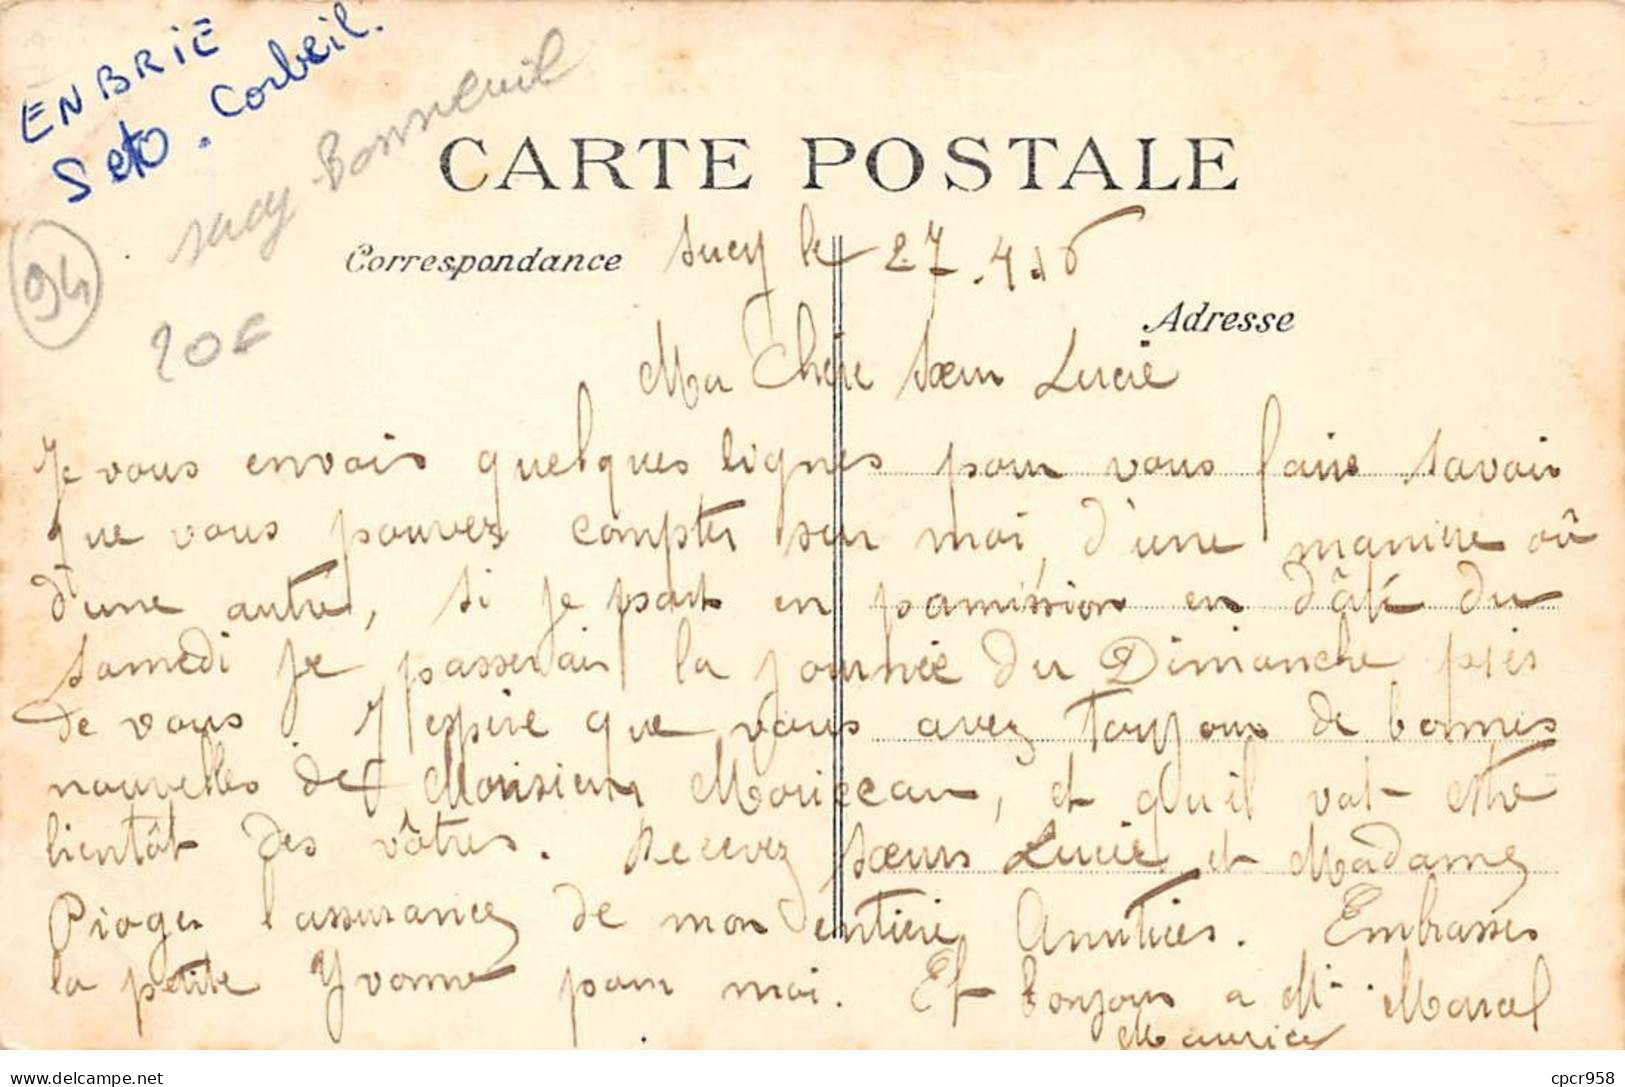 EN BRIE
S et O. Corbeil.
Sucy Bonneuil
94
20€
CARTE POSTALE
Correspondance
Sucy le 27.4.16
Adresse
Ma Chère Sœur Lucie
Je vous envois quelques lignes pour vous faire savoir
que vous pouvez compter sur moi, d'une manière où
d'une autre, si je part en permission en dâte du
samedi je passerais la journée du Dimanche près
de vous. J'espère que vous avez toujours de bonnes
nouvelles de Monsieur, et qu'il vat être
bientôt des vôtres. Recevez Sœurs Lucie et Madame
Pioger l'assurance de mon entière Amitiées. Embrasses
la petite Yvonne pour moi. Et bonjour a Mr Marcel
Maurice
Delcampe.net
cpcr958